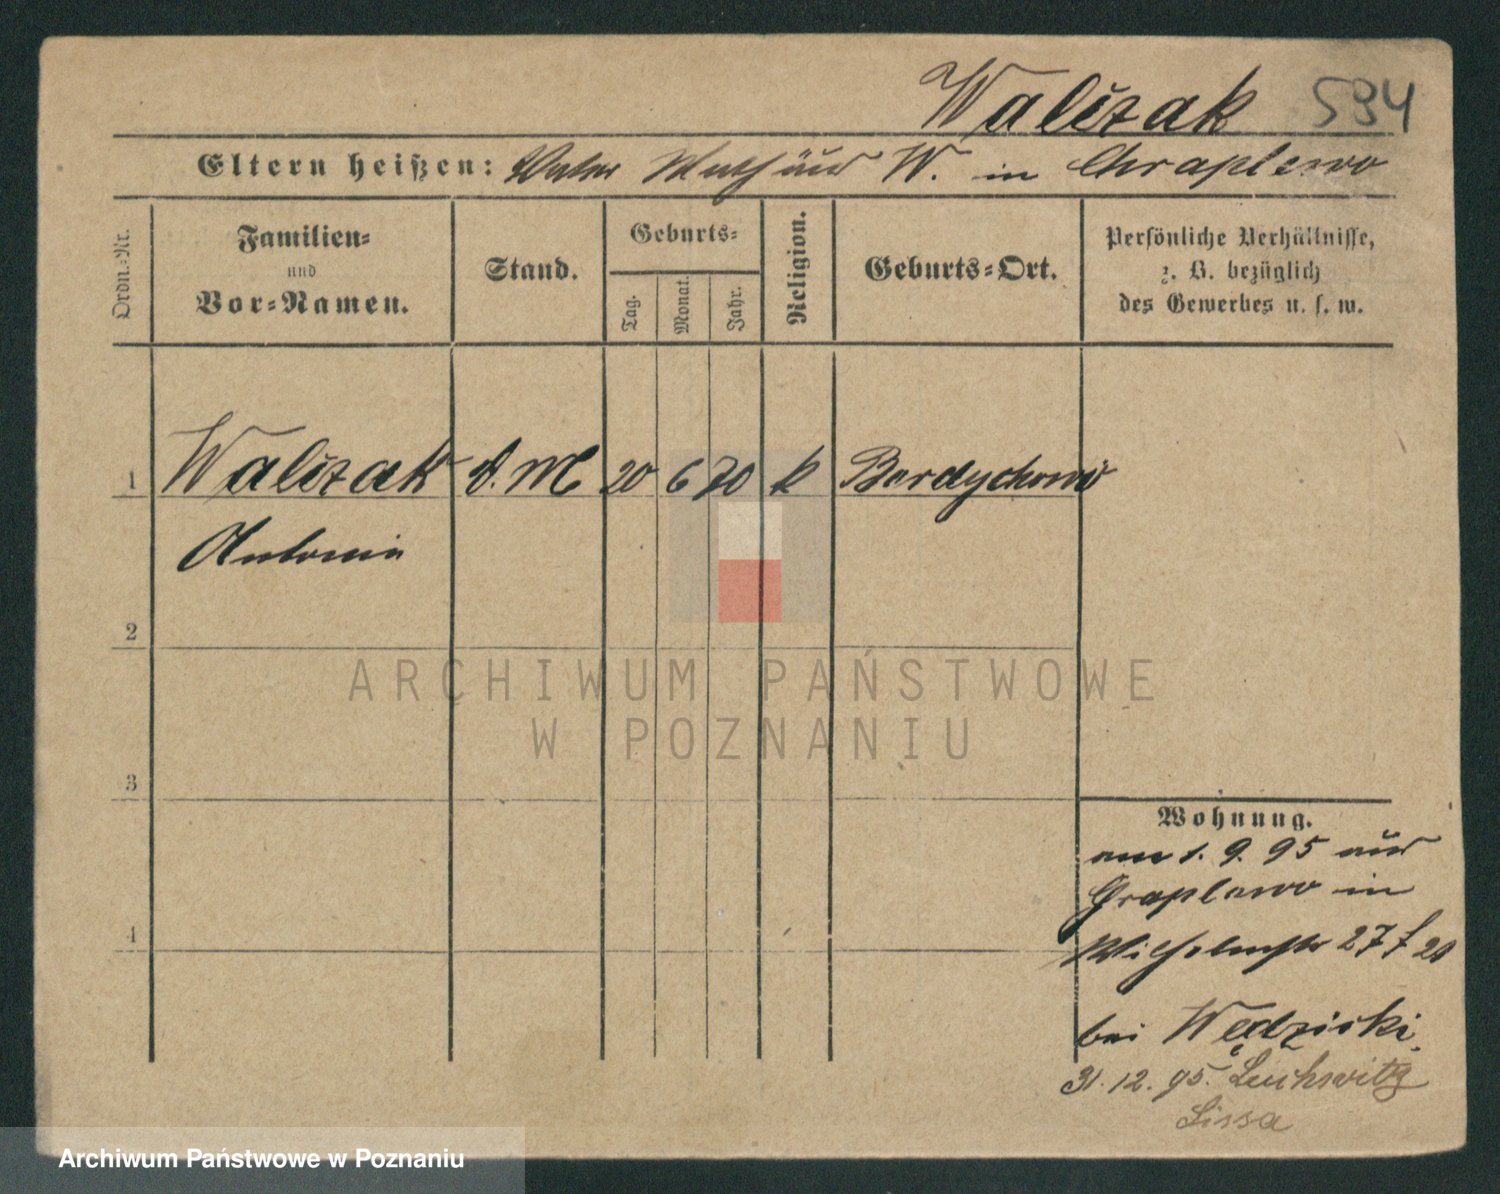 Walczak 594
Eltern heißen: Vater Mathäus W. in Chraplewo
Ordn.-Nr.
Familien-
und
Vor-Namen.
Stand.
Geburts-
Tag. Monat. Jahr.
Religion.
Geburts-Ort.
Persönliche Verhältnisse,
z. B. bezüglich
des Gewerbes u. s. w.
1 Walczak d. M 20 6 70 k Bordychowo
Antonia
2
3
4
Wohnung.
am 1. 9. 95 aus
Graplewo in
Wilhelmstr 27 f 20
bei Wędziski
31. 12. 95. Luchwitz
Lissa
ARCHIWUM PAŃSTWOWE
W POZNANIU
Archiwum Państwowe w Poznaniu